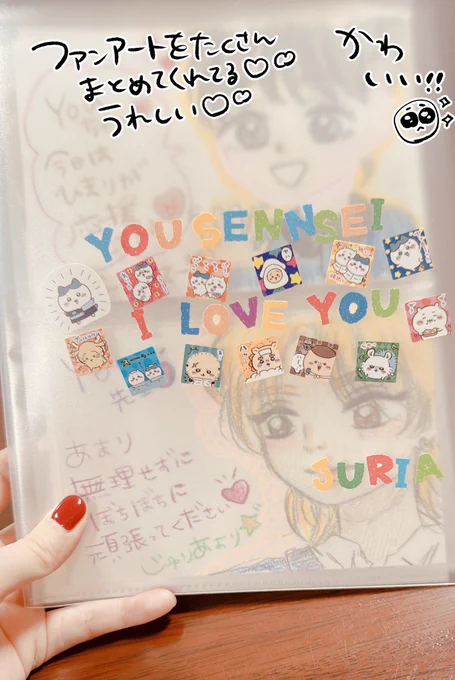 ファンアートをたくさん
まとめてくれてる♡♡
うれしい♡♡
かわ
いい!!
今日は
ひまりが
YOU SENNSEI
I LOVE YOU
あまり
無理せずに
ぼちぼちに
頑張ってください
じゅりあより
JURIA